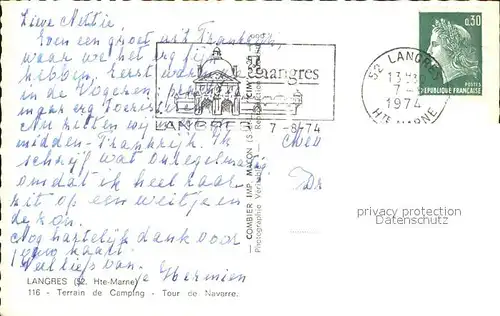 Lieve Nettie
Even een groet uit Frankrijk,
waar we het erg fijn
hebben. Eerst waren
in de Vogezen
erg toeris
Nu zitten wij
midden-Frankrijk. Ik
schrijf wat onregelmatig
omdat ik heel vaak
zit op een weitje in
de zon.
Nog hartelijk dank voor
jouw kaart.
Veel liefs van
je Hermien
LANGRES (52. Hte-Marne)
116 - Terrain de Camping - Tour de Navarre.
COMBIER IMP. MACON
Photographie Véritable
Langres
LANGRES
7-8-74
52 LANGRES
7-8
1974
HTE MARNE
0,30
POSTES
REPUBLIQUE FRANCAISE
privacy protection
watermark